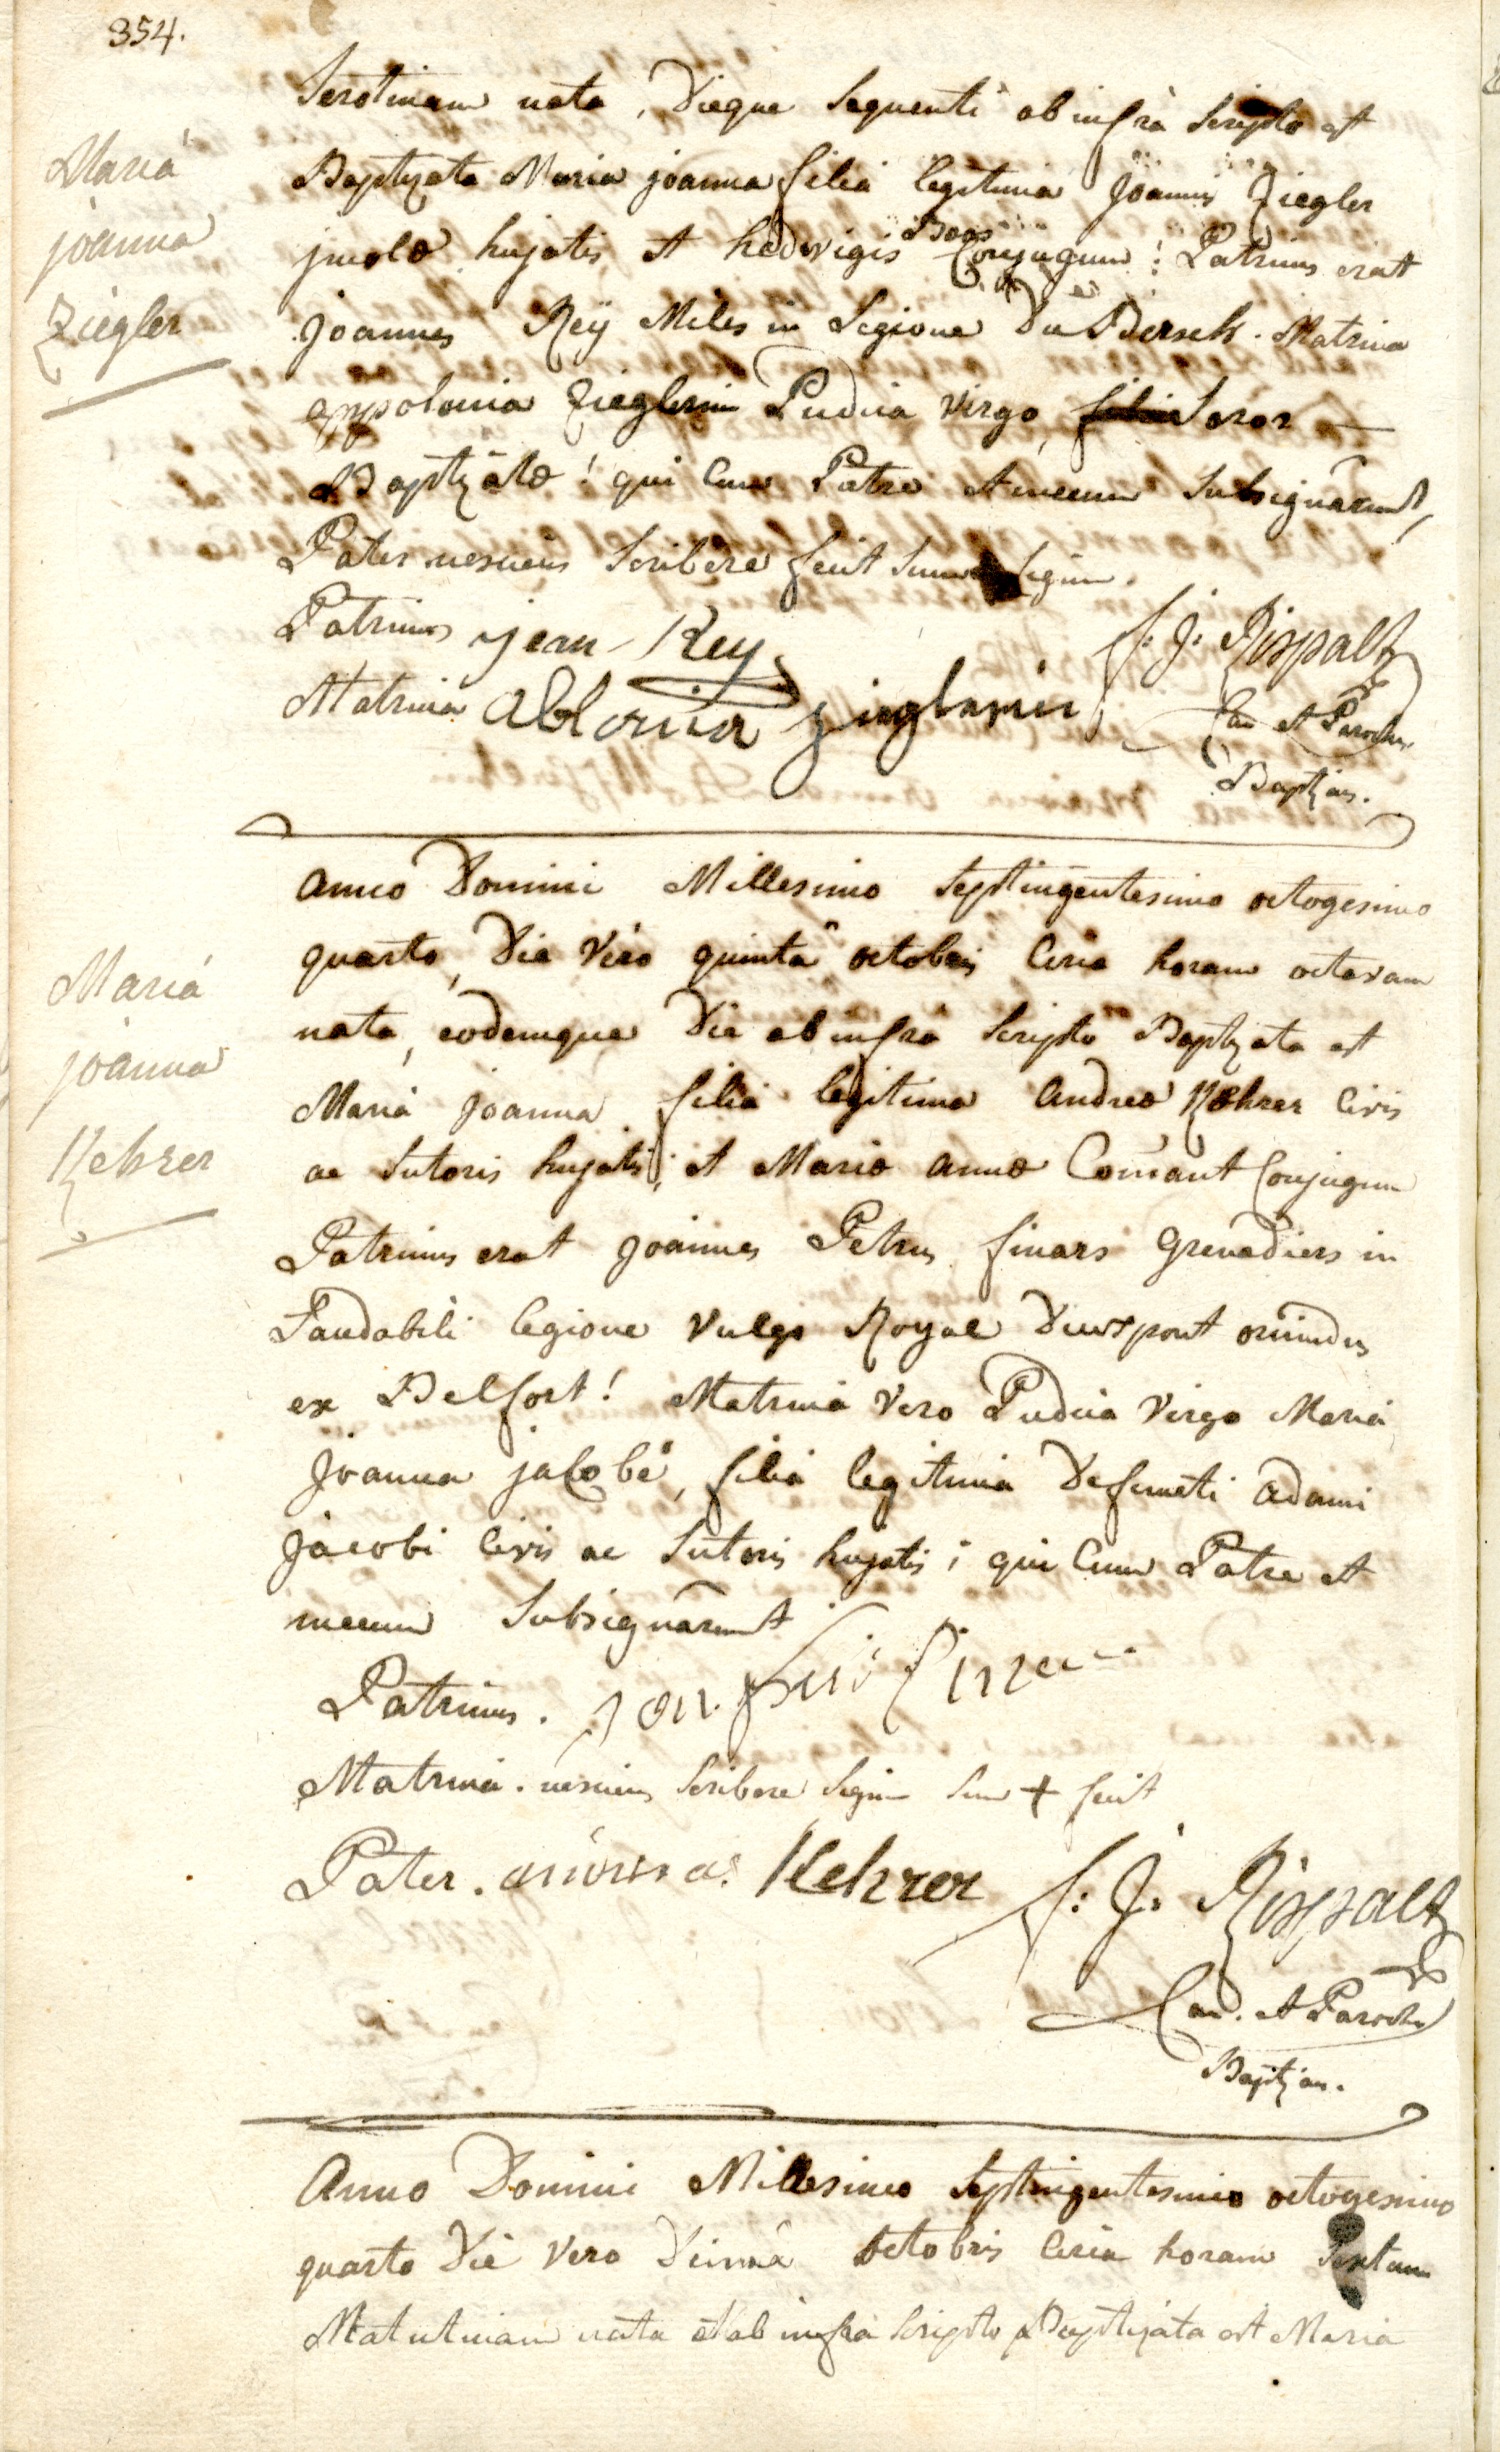 354.
Serotinam nata, Dieque Sequenti ab infrà Scripto est
Maria
joanna
Ziegler
Baptizata Maria joanna filia legitima Joannis Ziegler
jncolæ hujatis et hedwigis Boos Conjugum: Patrinus erat
Joannes Reÿ Miles in Legione Du Berseh. Matrina
appolonia Zieglerin Pudica Virgo, Soror
Baptizatæ! qui Cum Patre et mecum Subsignârunt,
Pater nesciens Scribere fecit Suum Signum.
Patrinus jean Rey
Matrina ablonia zieglerin
f: J: Rispalt
Can et Paroch.
Baptizans.
anno Domini Millesimo Septingentesimo octogesimo
quarto, Die Vero quintâ octobris Circa horam octavam
Maria
joanna
Kehrer
nata, eodemque Die ab infrà Scripto Baptizata est
Maria joanna filia legitima andreæ Kehrer Civis
ac Sutoris hujatis, et Mariæ annæ Comant Conjugum
Patrinus erat joannes Petrus finars grenadiers in
Laudabili legione Vulgo Royal Deuxpont oriundus
ex Belfort! Matrina Vero Pudica Virgo Maria
Joanna jacobé, filia legitima Defuncti adami
Jacobi Civis ac Sutoris hujatis; qui Cum Patre et
mecum Subsignârunt
Patrinus.
Matrina. nesciens Scribere Signum Suum + fecit
Pater. Kehrer
f: J: Rispalt
Can. et Paroch
Baptizans.
Anno Domini Millesimo Septingentesimo octogesimo
quarto Die Vero Decimâ octobris Circa horam Sextam
Matutinam nata et ab infra Scripto Baptizata est Maria